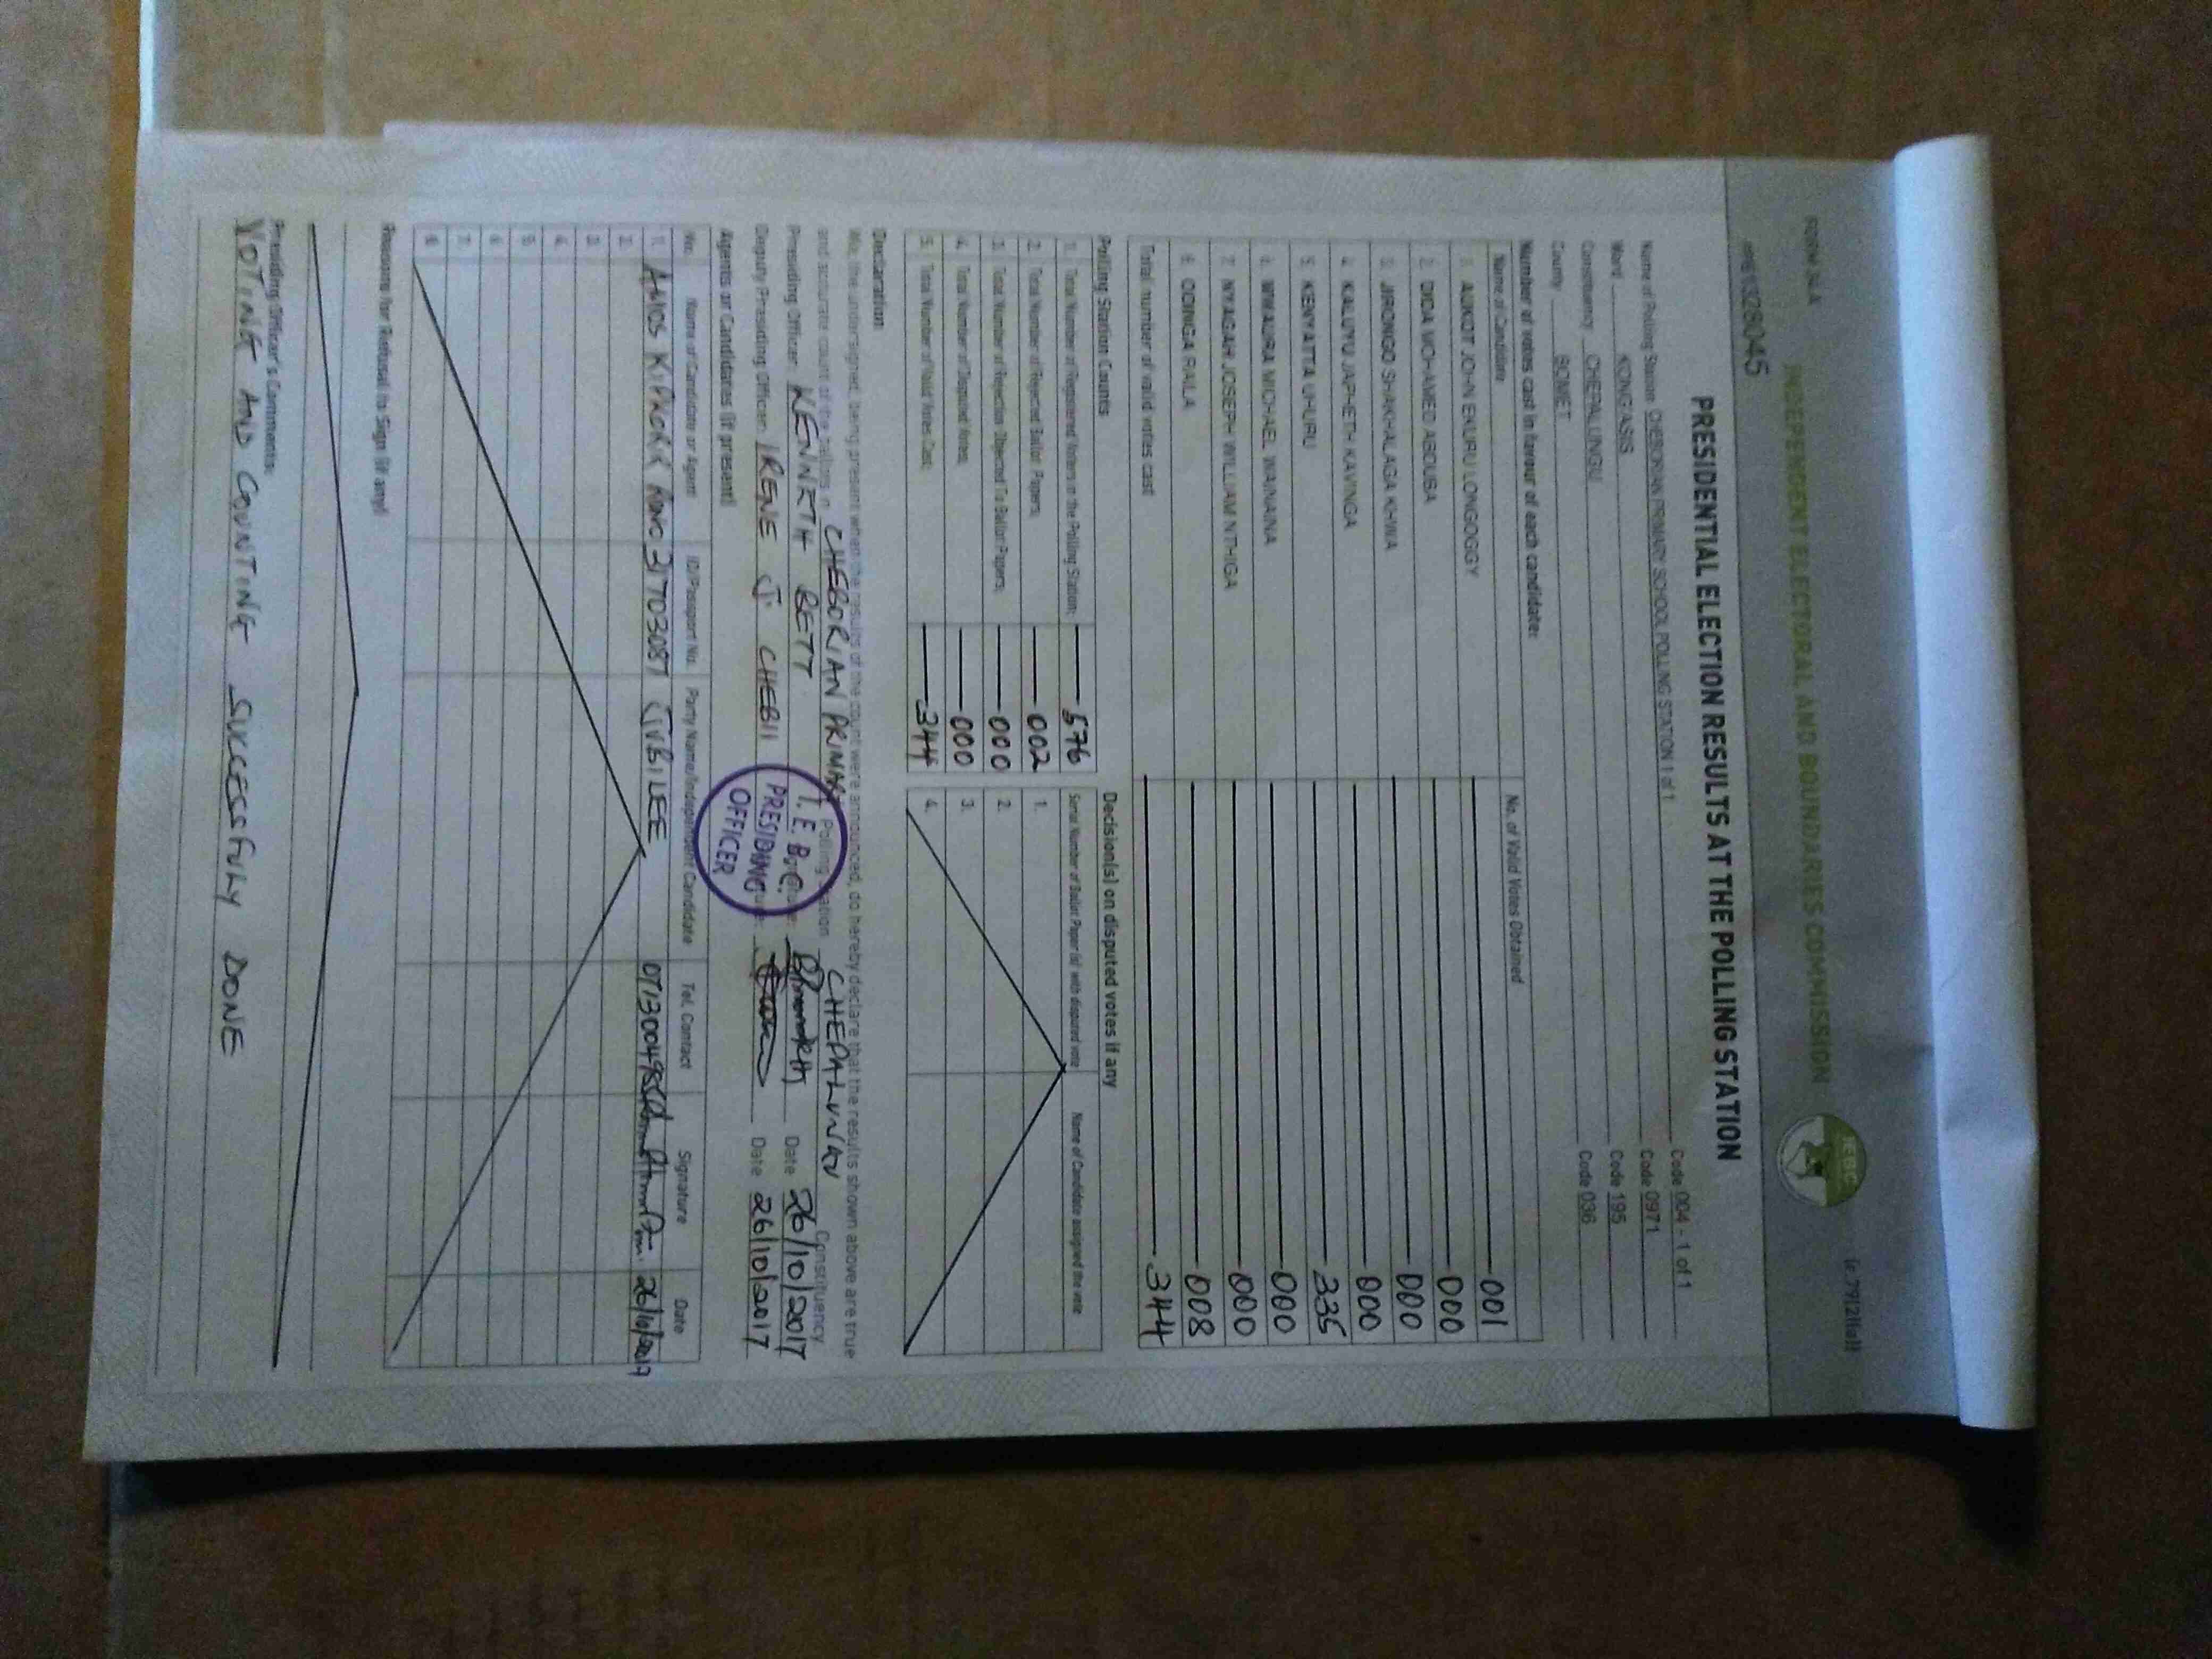 FORM 34A (r.79(2)(a))
INDEPENDENT ELECTORAL AND BOUNDARIES COMMISSION
IEBC
PRESIDENTIAL ELECTION RESULTS AT THE POLLING STATION
Name of Polling Station CHEBORIAN PRIMARY SCHOOL POLLING STATION 1 of 1 Code 004 - 1 of 1
Ward KONG'ASIS Code 0971
Constituency CHEPALUNGU Code 195
County BOMET Code 036
Number of votes cast in favour of each candidate:
Name of Candidate No. of Valid Votes Obtained
1. AUKOT JOHN EKURU LONGOGGY 001
2. DIDA MOHAMED ABDUBA 000
3. JIRONGO SHAKHALAGA KHWA 000
4. KALUYU JAPHETH KAVINGA 000
5. KENYATTA UHURU 335
6. MWAURA MICHAEL WAINAINA 000
7. NYAGAH JOSEPH WILLIAM NTHIGA 000
8. ODINGA RAILA 008
Total number of valid votes cast 344
Polling Station Counts
1. Total Number of Registered Voters in the Polling Station: 576
2. Total Number of Rejected Ballot Papers: 002
3. Total Number of Rejection Objected To Ballot Papers: 000
4. Total Number of Disputed Votes: 000
5. Total Number of Valid Votes Cast: 344
Decision(s) on disputed votes if any
Serial Number of Ballot Paper (s) with disputed vote Name of Candidate assigned the vote
1.
2.
3.
4.
Declaration
We, the undersigned, being present when the results of the count were announced, do hereby declare that the results shown above are true
and accurate count of the ballots in CHEBORIAN PRIMARY Polling Station CHEPALUNGU Constituency
Presiding Officer: KENNETH BETT Date 26/10/2017
Deputy Presiding Officer: IRENE J. CHEBII Date 26/10/2017
I. E. B. C.
PRESIDING
OFFICER
Agents or Candidates (if present)
No. Name of Candidate or Agent ID/Passport No. Party Name/Independent Candidate Tel. Contact Signature Date
1. AMOS KIPKORIR 31703087 JUBILEE 26/10/2017
2.
3.
4.
5.
6.
7.
8.
Reasons for Refusal to Sign (if any)
Presiding Officer's Comments:
VOTING AND COUNTING SUCCESSFULLY DONE